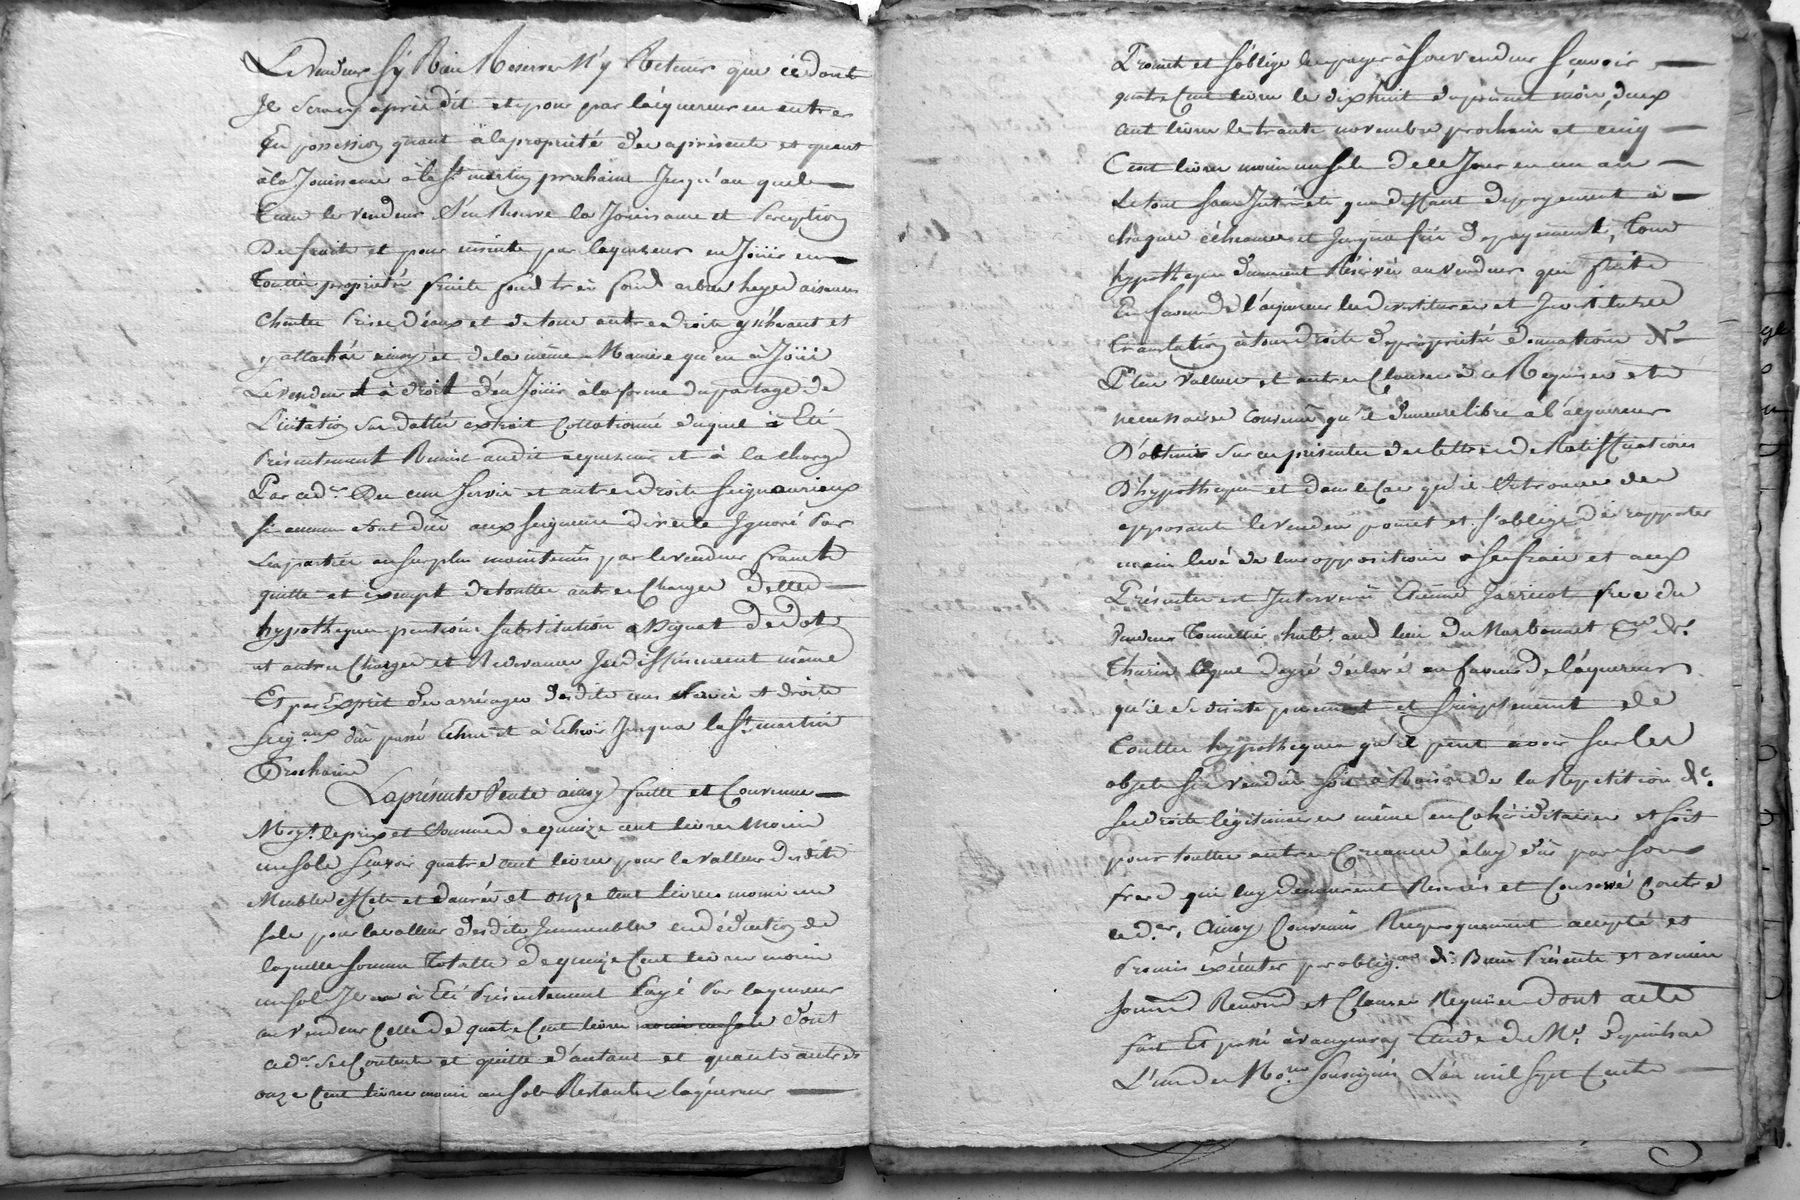 Le Vendeur s'y Rien Reserver N'y Retenir que ce dont
Il sera cy après dit et pour par l'aquereur en entrer
En possession quant a la propriété des aprésente et quant
à la Jouissance à la St martin prochaine Jusqu'au quel
Tems le vendeur s'en Reserve la Jouissance et Perception
Des fruits et pour ensuite par laquereur en Jöuir en
Toutte propriété fruits fond très fond arbres hayes aisances
Charter Prises d'eaux et de tous autres droits y
y attachés ainsy et de la même Maniere qu'en à Jöui
Le vendeur et à droit d'en Jöuir à la forme du partage de
Licitation Sus datté extrait Collationné duquel à Eté
Présentement Remis audit aquereur et à la charge
Par cedr Des cens Servis et autres droits Seigneuriaux
si aucuns sont dûs aux Seigneurs directe Ignoré Par
Les parties au surplus maintenus par le vendeur franche
quitte et exempt de touttes autres Charges dettes
hypotheques pentions substitution Dot
et autres Charges et Redevances Indiffinement même
Et par Exprès des arrérages desdits cens Servis et droits
Seigaux dûs passé Echus et à Echoir Jusqua la St martin
Prochaine
La présente Vente ainsy faitte et Convenue
Moyt le prix et Somme de quinze cent livres Moins
un sols Sçavoir quatre cent livres pour la valleur desdits
Meubles effets et danrées et onze cent livres moins un
sols pour la valleur desdits Immeubles en déduction de
laquelle somme Totalle de quinze Cent livres moins
un sol Il en à Eté Présentement Payé Par laquereur
au Vendeur Celle de quatre Cent livres moins un sols dont
cedr Se Contente et quitte d'autant et quant aux autres
onze Cent livres moins un sols Restantes laquereur
Promet et s'oblige de payer à son vendeur Sçavoir
quatre Cent livres le dixhuit du présent mois, deux
cent livres le trante novembre prochain et cinq
Cent livres moins un sols De ce Jour en un an
Le tout sans Intérêts que deffaut de payement à
chaque échéance et Jusqua fin de payement, sous
hypotheque Demeurent Réservées au vendeur qui fait
En faveur de l'aquereur les devestitures et Investitures
translation à tous droits de propriété donnation de
Plus Vallue et autres Clauses à ce Requises et
necessaires convenu qu'il demeure libre a l'aquereur
D'obtenir sur ces présentes des lettres de Ratiffications
D'hypotheque et dans le Cas qu'il s'y trouve des
opposants le vendeur promet et s'oblige d'en rapporter
main levé de leurs oppositions à ses frais et aux
Présentes est Intervenu Etienne Jarricot frere du
Vendeur Tonnellier habt aud lieu Du Narbonnet
Thurin lequel de gré déclaré en faveur de l'aquereur
qu'il se désiste purement et simplement de
Touttes hypotheques qu'il peut avoir sur les
objets sus vendûs soit à Raison de la Repetition de
ses droits légitimaires même en Cohéréditaires et soit
pour touttes autres Créances à luy dûs par son
frere qui luy demeurent Reservés et Conservé Contre
cedr. Ainsy Convenu Reciproquement accepté et
Promis exécuter par oblign de Biens Présents et avenir
Soumn Renonn et Clauses Requises dont acte
fait Et passé à vaugneray Etude de Me
L'un des Nores Soussignés L'an mil sept Cents